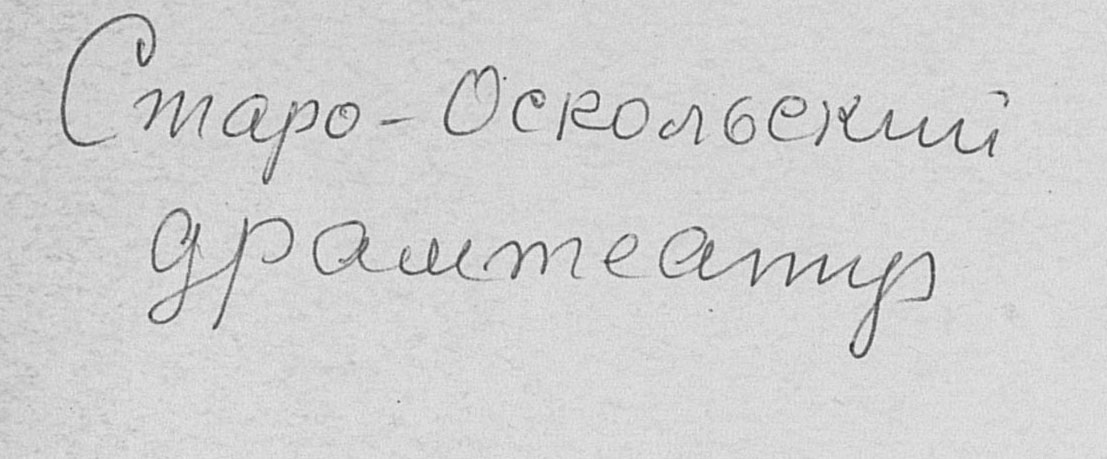 Старо-Оскольский
драмтеатр